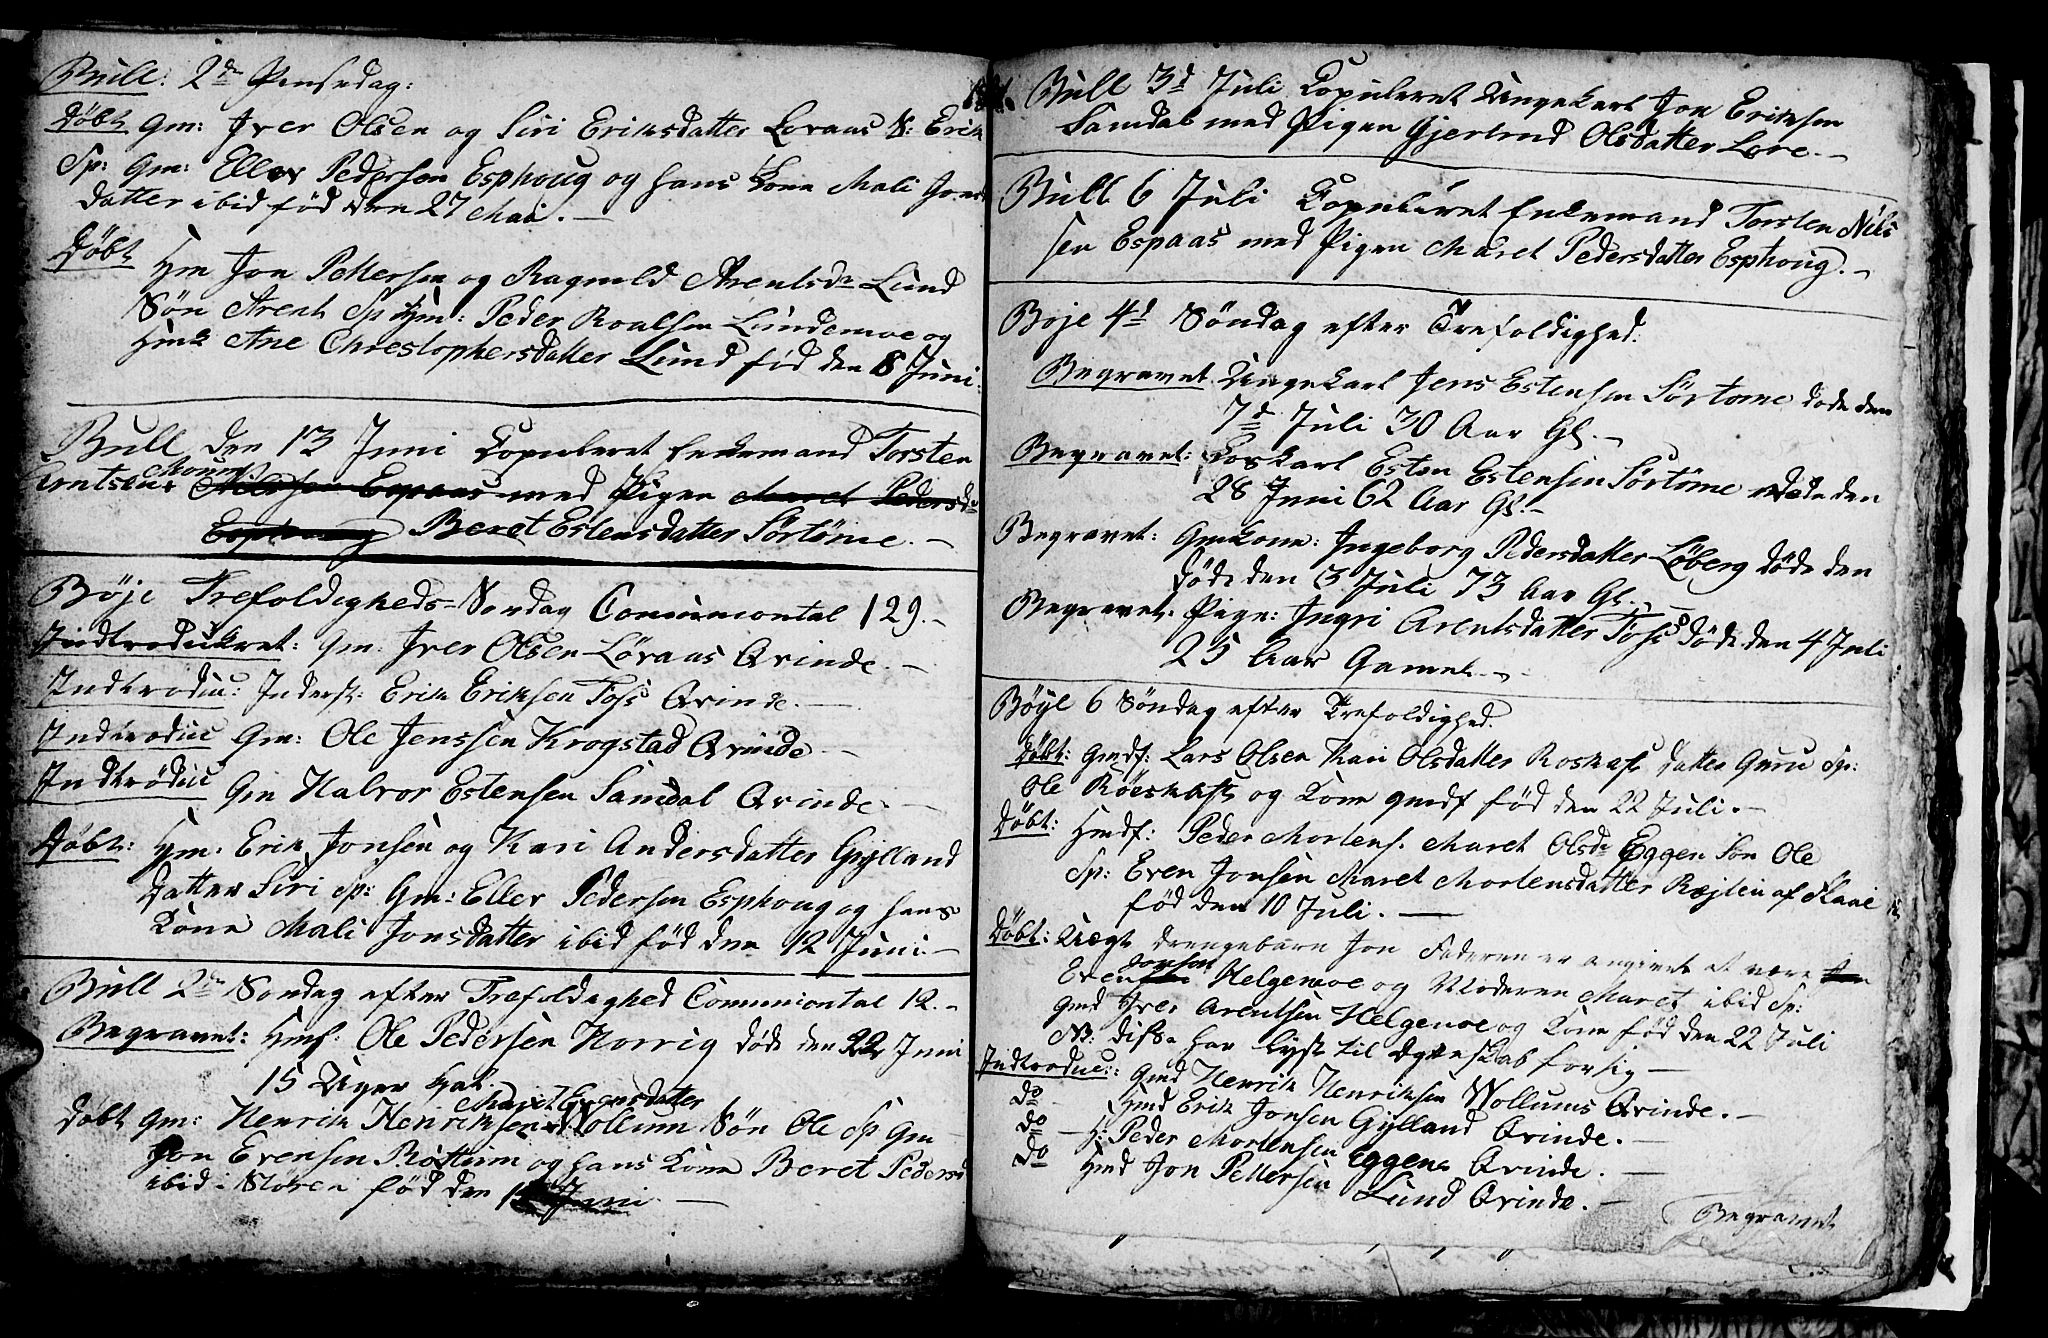 Bull. 2den Pinsedag:
Døbt Gm: Iver Olsen og Siri Eriksdatter Løvaas S: Erik
Sp: Gm: Ellev Pedersen Esphoug og hans Kone Mali Jons
datter ibid fød den 27 Mai. —
Døbt Hm Jon Pettersen og Ragnild Arentsdr Lund
Søn Arent Sp Hm: Peder Roalsen Lundemoe og
Hmk Ane Chrestophersdatter Lund fød den 8 Juni:
Bull den 13 Juni Copuleret Enkemand Torsten
Arntsen
Nilsen Espaas med Pigen Maret Pedersdr
Esphoug Beret Estensdatter Sørtøme. —
Böje Trefoldigheds-Søndag Communiontal 129. —
Indtroduceret: Gm: Iver Olsen Løvaas Qvinde. —
Indtroduc: Inderst: Erik Eriksen Foss Qvinde. —
Indtroduc Gm: Ole Jenssen Krogstad Qvinde —
Indtröduc Gm Halvor Estensen Samdal Qvinde. —
Døbt: Hm: Erik Jonsen og Kari Andersdatter Gylland
datter Siri Sp: Gm: Ellev Pedersen Esphoug og hans
Kone Mali Jonsdatter ibid fød den 12 Juni —
Bull 2den Søndag efter Trefoldeghed Communiontal 12. —
Begravet: Hmf: Ole Pedersen Horrig døde den 22 Juni
15 Uger Gal.
Maret Evensdatter
døbt Gm: Henrik Henriksen Vollum Søn Ole Sp Gm
Jon Evensen Röttum og hans Kone Beret Pedersd
ibid i Støren fød den Juni —
Bull 3d Juli Copuleret Ungekarl Jon Eriksen
Samdal med Pigen Gjertrud Olsdatter Lore. —
Bull 6 Juli Copuleret Enkemand Torsten Nils
sen Espaas med Pigen Maret Pedersdatter Esphoug. —
Böje 4d Søndag efter Trefoldighed.
Begravet Ungekarl Jens Estensen Sørtøme døde den
7d Juli 30 Aar Gl. —
Begravet: Løskarl Esten Estensen Sørtøme døde den
28 Juni 62 Aar Gl. —
Begravet: Gmkone: Ingeborg Pedersdatter Løberg døde den
døde den 3 Juli 73 Aar Gl. —
Begravet: Pige: Ingri Arentsdatter Foss døde den 4 Juli
25 Aar Gamel. —
Böyl 6 Søndag efter Trefoldighed.
Døbt: Gmdf: Lars Olsen Kari Olsdatter Roskaft datter Guru Sp:
Ole Röeskaft og Kone gmdf fød den 22 Juli. —
Døbt: Hmdf: Peder Mortens. Maret Olsdr Eggen Søn Ole
Sp: Even Jonsen Maret Mortensdatter Røjten af Flaae
fød den 10 Juli. —
Døbt: Uægt drengebarn Jon Faderen er angivet at være
Jonsen
Even Helgemoe og Moderen Maret ibid Sp:
Gmd Iver Arentsen Helgemoe og Kone fød den 22 Juli
NB: disse har lyst til Ægteskab forsig —
Indtroduc: Gmd Henrik Henriksen Wollums Qvinde. —
do — Hmd Erik Jonsen Gylland Qvinde. —
do — H: Peder Mortensen Eggens Qvinde. —
do Hmd Jon Pettersen Lund Qvinde. —
Begravet